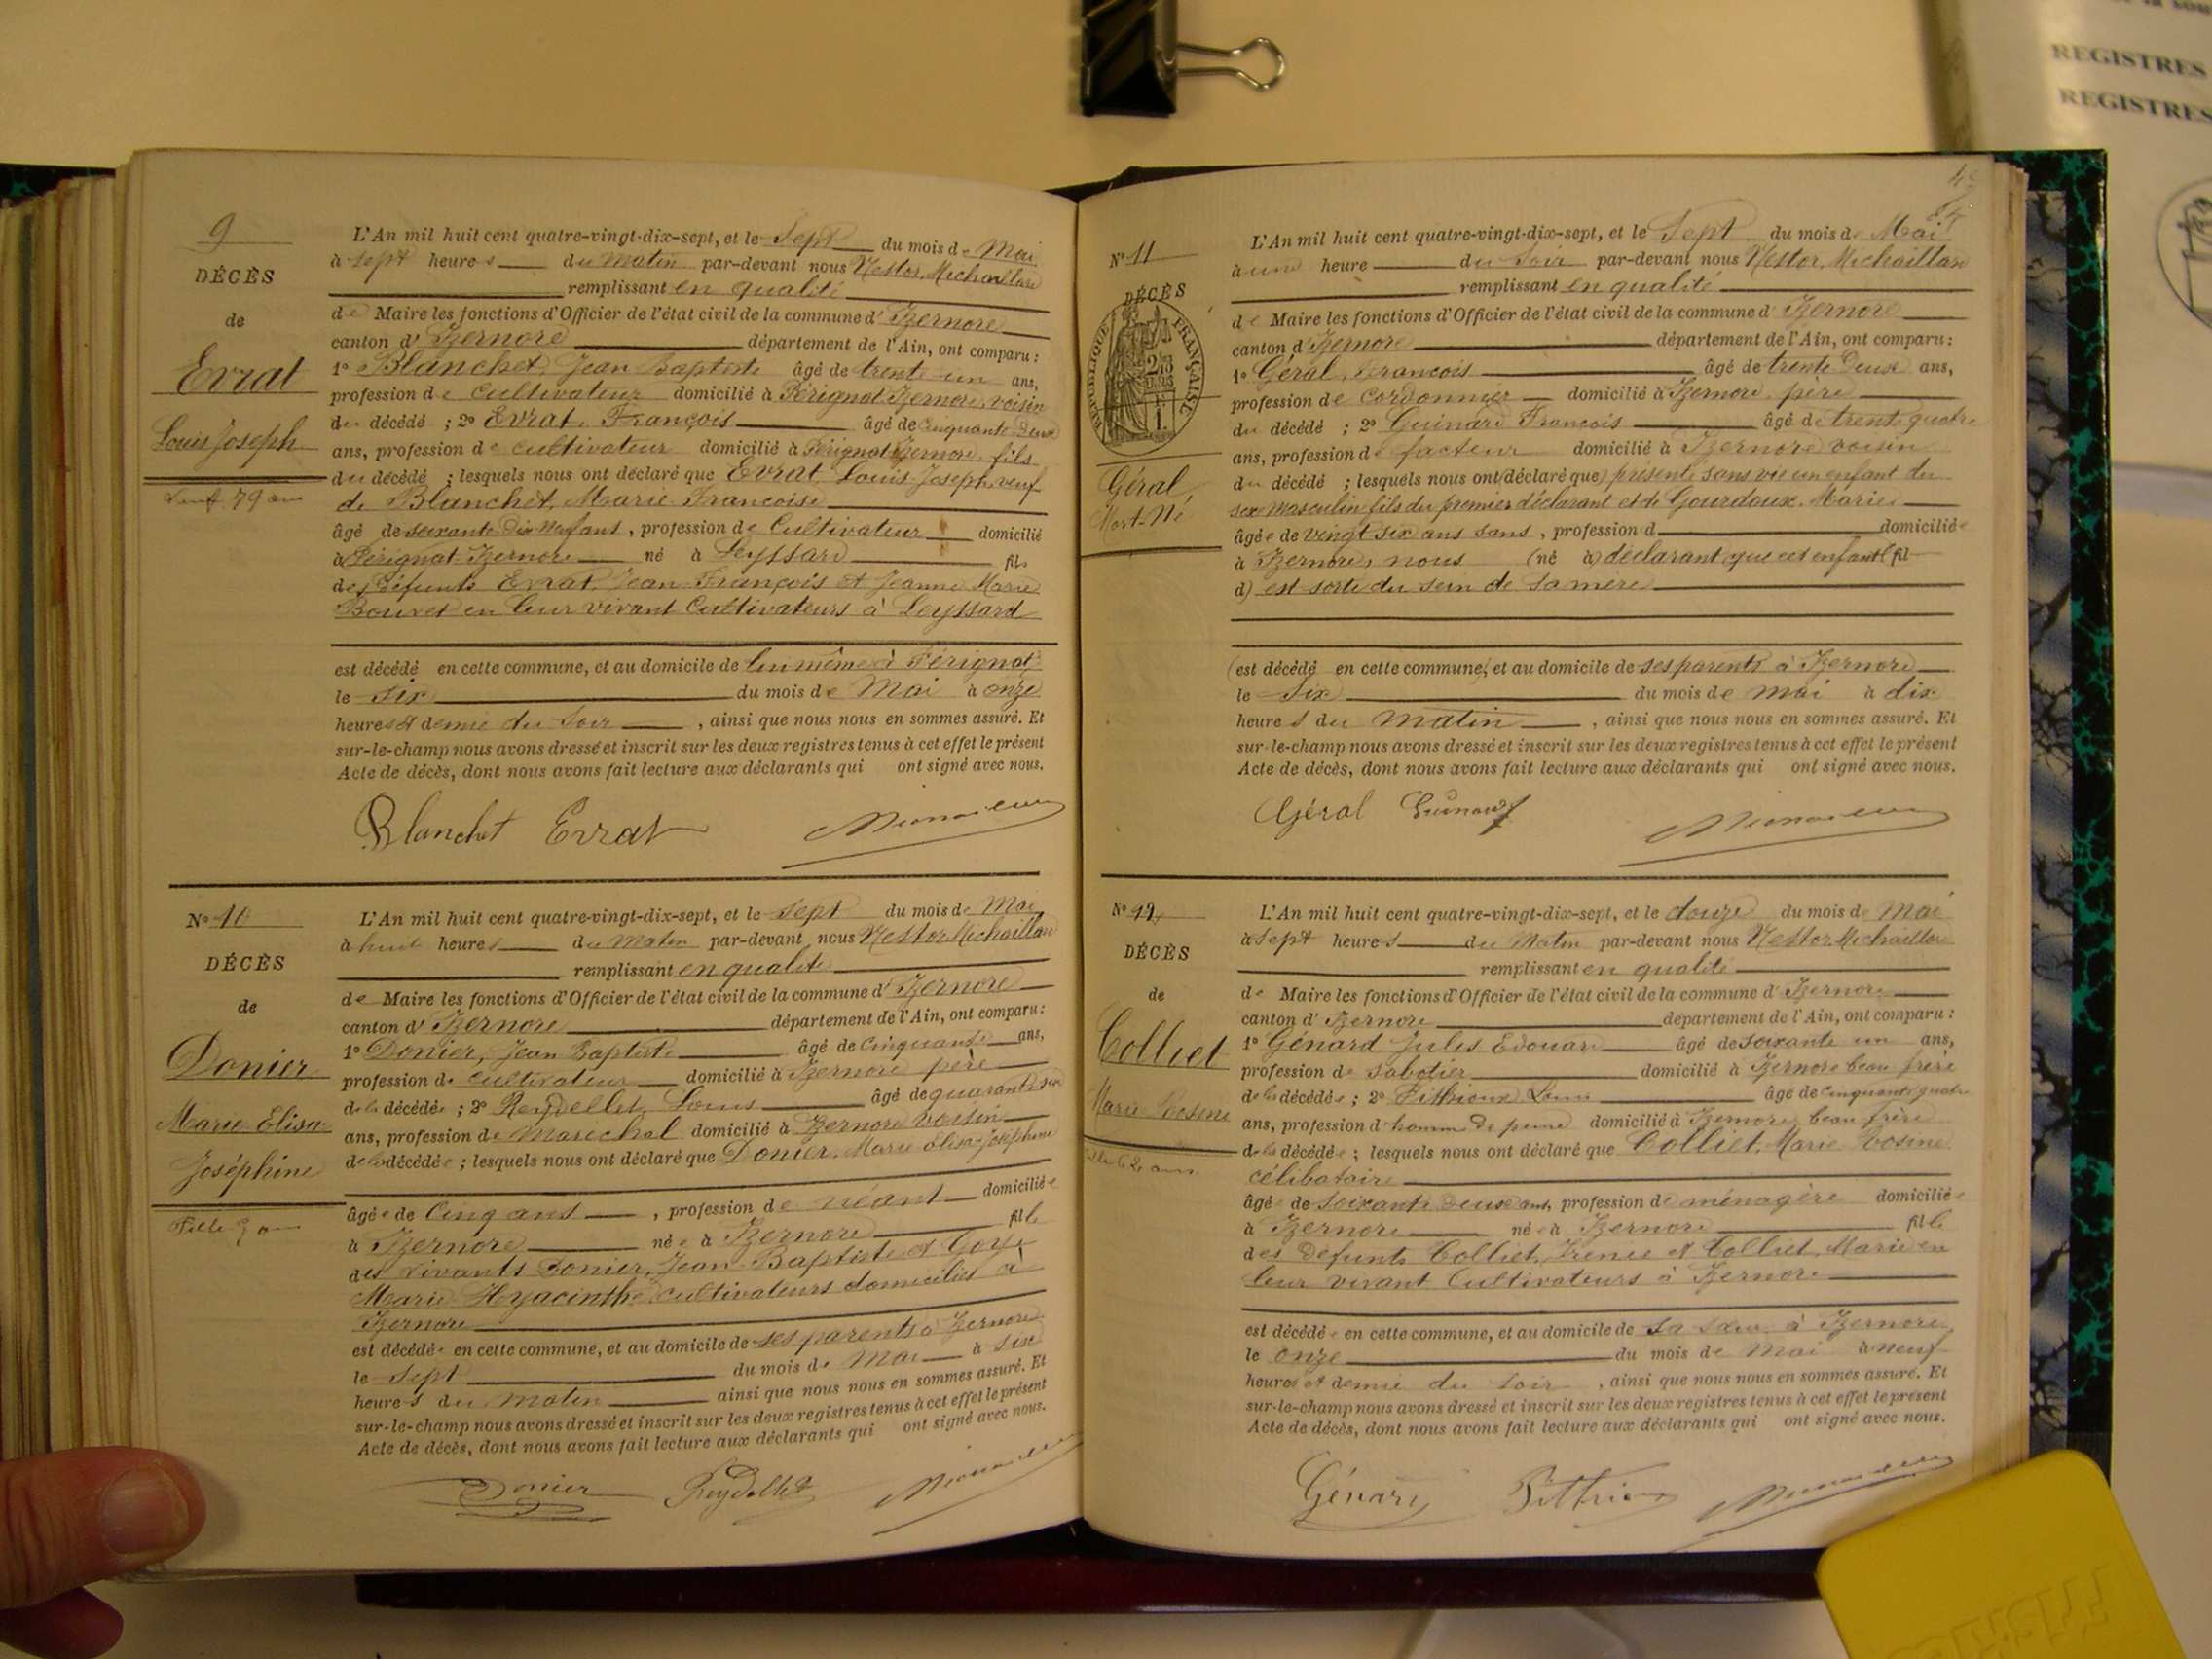 9
DÉCÈS
de
Evrat
Louis Joseph
79 ans
L'An mil huit cent quatre-vingt-dix-sept, et le Sept du mois de Mai
à sept heures du matin par-devant nous Nestor Michaillard
remplissant en qualité
de Maire les fonctions d'Officier de l'état civil de la commune d'Izernore
canton d'Izernore département de l'Ain, ont comparu :
1° Blanchet, Jean Baptiste âgé de trente un ans,
profession de cultivateur domicilié à Pérignat Izernore, voisin
du décédé ; 2° Evrat, François âgé de cinquante deux
ans, profession de cultivateur domicilié à Pérignat Izernore, fils
du décédé ; lesquels nous ont déclaré que Evrat Louis-Joseph, veuf
de Blanchet, Marie Françoise
âgé de soixante dix neuf ans, profession de Cultivateur domicilié
à Pérignat Izernore né à Leyssard fils
des défunts Evrat, Jean-François et Jeanne Marie
Bouvet en leur vivant Cultivateurs à Leyssard
est décédé en cette commune, et au domicile de lui même à Pérignat
le Six du mois de Mai à onze
heures et demie du Soir, ainsi que nous nous en sommes assuré. Et
sur-le-champ nous avons dressé et inscrit sur les deux registres tenus à cet effet le présent
Acte de décès, dont nous avons fait lecture aux déclarants qui ont signé avec nous.
Blanchet Evrat
N° 10
DÉCÈS
de
Donier
Marie Elisa
Joséphine
Fille
L'An mil huit cent quatre-vingt-dix-sept, et le Sept du mois de Mai
à huit heures du Matin par-devant nous Nestor Michaillard
remplissant en qualité
de Maire les fonctions d'Officier de l'état civil de la commune d'Izernore
canton d'Izernore département de l'Ain, ont comparu :
1° Donier, Jean Baptiste âgé de Cinquante ans,
profession de cultivateur domicilié à Izernore père
de la décédée ; 2° Reydellet, Louis âgé de quarante six
ans, profession de Maréchal domicilié à Izernore voisin
de la décédée ; lesquels nous ont déclaré que Donier, Marie Elisa-Joséphine
âgée de Cinq ans, profession de néant domiciliée
à Izernore née à Izernore fille
des vivants Donier, Jean Baptiste et Goyet
Marie Hyacinthe, cultivateurs domiciliés à
Izernore
est décédée en cette commune, et au domicile de ses parents à Izernore
le Sept du mois de Mai à six
heures du matin ainsi que nous nous en sommes assuré. Et
sur-le-champ nous avons dressé et inscrit sur les deux registres tenus à cet effet le présent
Acte de décès, dont nous avons fait lecture aux déclarants qui ont signé avec nous.
Donier Reydellet
N° 11
DÉCÈS
RÉPUBLIQUE FRANÇAISE
Géral
Mort-Né
L'An mil huit cent quatre-vingt-dix-sept, et le Sept du mois de Mai
à une heure du Soir par-devant nous Nestor Michaillard
remplissant en qualité
de Maire les fonctions d'Officier de l'état civil de la commune d'Izernore
canton d'Izernore département de l'Ain, ont comparu :
1° Géral, François âgé de trente Deux ans,
profession de cordonnier domicilié à Izernore, père
du décédé ; 2° Guinard François âgé de trente quatre
ans, profession de facteur domicilié à Izernore voisin
du décédé ; lesquels nous ont (déclaré que) présenté sans vie un enfant du
sexe masculin fils du premier déclarant et de Gourdoux, Marie
âgée de vingt six ans sans, profession d domiciliée
à Izernore, nous (né à) déclarant que cet enfant (fil
d) est sorti du sein de sa mère
(est décédé en cette commune, et au domicile de ses parents à Izernore
le Six du mois de mai à dix
heures du matin, ainsi que nous nous en sommes assuré. Et
sur-le-champ nous avons dressé et inscrit sur les deux registres tenus à cet effet le présent
Acte de décès, dont nous avons fait lecture aux déclarants qui ont signé avec nous.
Géral Guinard
N° 12
DÉCÈS
de
Colliet
Marie Rosine
62 ans
L'An mil huit cent quatre-vingt-dix-sept, et le douze du mois de Mai
à Sept heures du Matin par-devant nous Nestor Michaillard
remplissant en qualité
de Maire les fonctions d'Officier de l'état civil de la commune d'Izernore
canton d'Izernore département de l'Ain, ont comparu :
1° Génard Jules Edouard âgé de soixante un ans,
profession de Sabotier domicilié à Izernore beau frère
de la décédée ; 2° Pithioux Louis âgé de cinquante quatre
ans, profession d'homme de peine domicilié à Izernore, beau frère
de la décédée ; lesquels nous ont déclaré que Colliet, Marie Rosine
célibataire
âgée de Soixante Deux ans, profession de ménagère domiciliée
à Izernore née à Izernore fille
des Défunts Colliet, Irénée et Colliet, Marie en
leur vivant Cultivateurs à Izernore
est décédée en cette commune, et au domicile de sa sœur à Izernore
le onze du mois de Mai à neuf
heures et demie du soir, ainsi que nous nous en sommes assuré. Et
sur-le-champ nous avons dressé et inscrit sur les deux registres tenus à cet effet le présent
Acte de décès, dont nous avons fait lecture aux déclarants qui ont signé avec nous.
Génard
REGISTRES
REGISTRES